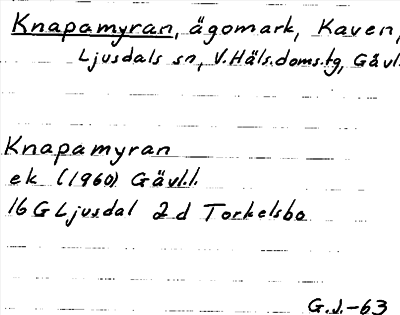 Knapamyran, ägomark, Kaven,
Ljusdals sn, V.Häls.doms.tg, Gävl.
Knapamyran
ek (1960) Gävl.l.
16 G Ljusdal 2 d Torkelsbo
G.J.-63